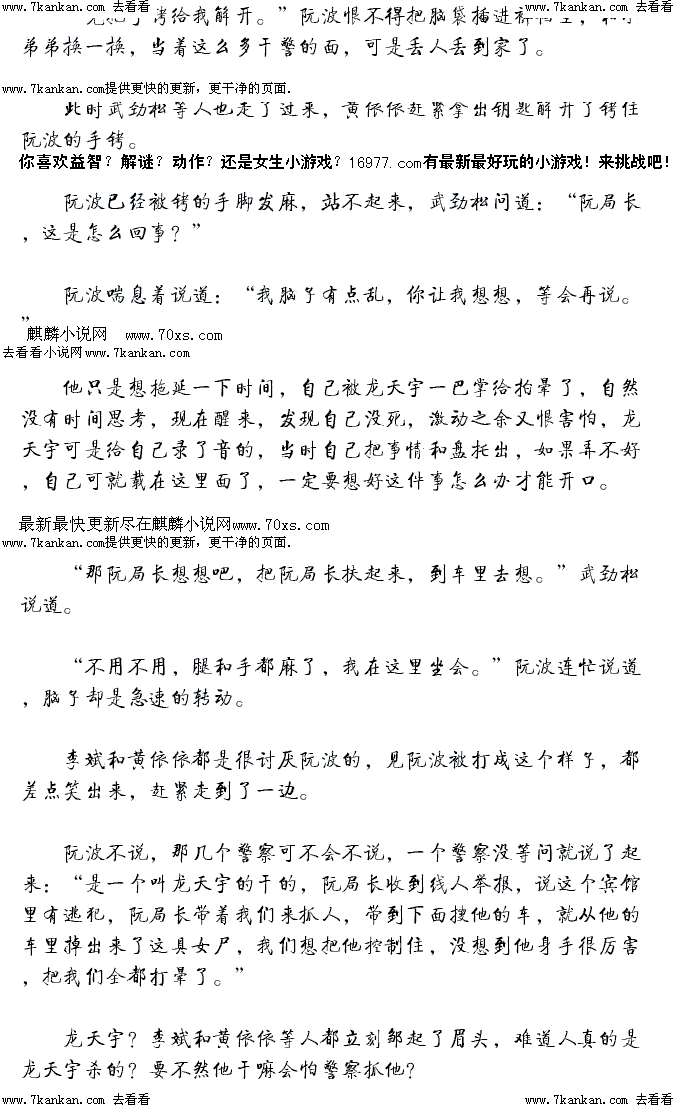 www.7kankan.com 去看看 www.7kankan.com 去看看
给我解开。”阮波恨不得把脑袋插进
弟弟换一换，当着这么多干警的面，可是丢人丢到家了。
www.7kankan.com提供更快的更新，更干净的页面.
此时武劲松等人也走了过来，黄依依赶紧拿出钥匙解开了铐住
阮波的手铐。
你喜欢益智？解谜？动作？还是女生小游戏？16977.com有最新最好玩的小游戏！来挑战吧！
阮波已经被铐的手脚发麻，站不起来，武劲松问道：“阮局长
，这是怎么回事？”
阮波喘息着说道：“我脑子有点乱，你让我想想，等会再说。
”
麒麟小说网 www.70xs.com
去看看小说网www.7kankan.com
他只是想拖延一下时间，自己被龙天宇一巴掌给拍晕了，自然
没有时间思考，现在醒来，发现自己没死，激动之余又恨害怕，龙
天宇可是给自己录了音的，当时自己把事情和盘托出，如果弄不好
，自己可就载在这里面了，一定要想好这件事怎么办才能开口。
最新最快更新尽在麒麟小说网www.70xs.com
www.7kankan.com提供更快的更新，更干净的页面.
“那阮局长想想吧，把阮局长扶起来，到车里去想。”武劲松
说道。
“不用不用，腿和手都麻了，我在这里坐会。”阮波连忙说道
，脑子却是急速的转动。
李斌和黄依依都是很讨厌阮波的，见阮波被打成这个样子，都
差点笑出来，赶紧走到了一边。
阮波不说，那几个警察可不会不说，一个警察没等问就说了起
来：“是一个叫龙天宇的干的，阮局长收到线人举报，说这个宾馆
里有逃犯，阮局长带着我们来抓人，带到下面搜他的车，就从他的
车里掉出来了这具女尸，我们想把他控制住，没想到他身手很厉害
，把我们全都打晕了。”
龙天宇？李斌和黄依依等人都立刻邹起了眉头，难道人真的是
龙天宇杀的？要不然他干嘛会怕警察抓他？
www.7kankan.com 去看看 www.7kankan.com 去看看